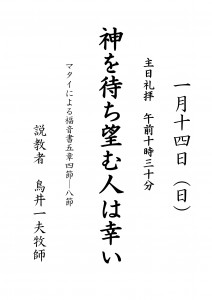 一月十四日（日）
主日礼拝　午前十時三十分
神を待ち望む人は幸い
マタイによる福音書五章四節―八節
説教者　鳥井一夫牧師